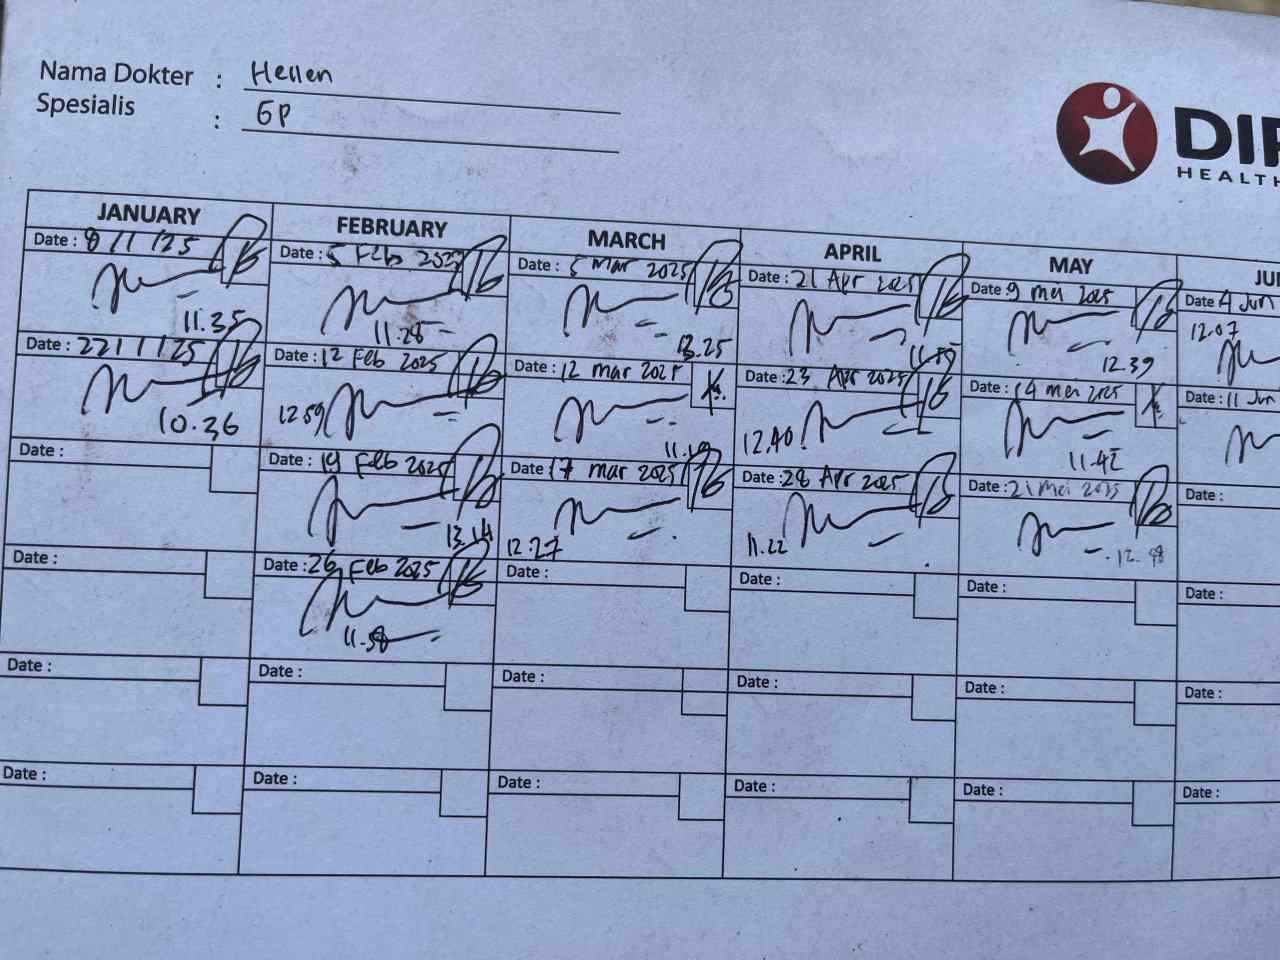 Nama Dokter : Hellen
Spesialis : GP
DIR
HEALTH
JANUARY FEBRUARY MARCH APRIL MAY JU
Date : 8/1/25 Date : 5 Feb 2025 Date : 5 Mar 2025 Date : 21 Apr 2025 Date 9 mei 2025 Date 4 Jun
11.35 11.28 13.25 11.59 12.39 12.07
Date : 22/1/25 Date : 12 Feb 2025 Date : 12 mar 2025 Date : 23 Apr 2025 Date : 14 mei 2025 Date : 11 Jun
10.36 12.59 11.19 12.40 11.42
Date : Date : 19 Feb 2025 Date 17 mar 2025 Date : 28 Apr 2025 Date : 21 Mei 2025 Date :
13.14 12.27 11.22 12.48
Date : Date : 26 Feb 2025 Date : Date : Date : Date :
11.58
Date : Date : Date : Date : Date : Date :
Date : Date : Date : Date : Date : Date :